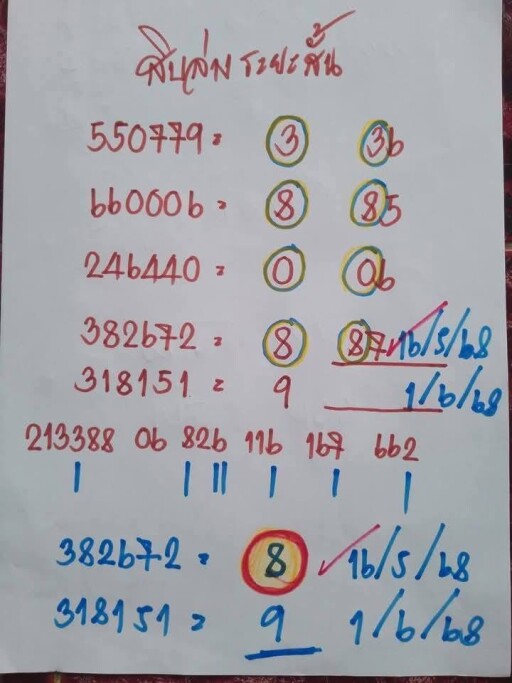 สิบล่าง ระยะสั้น
550779 = 3 36
660006 = 8 85
246440 = 0 06
382672 = 8 87 ✓ 16/5/68
318151 = 9 1/6/68
213388 06 826 116 167 662
| | || | | |
382672 = 8 ✓ 16/5/68
318151 = 9 1/6/68